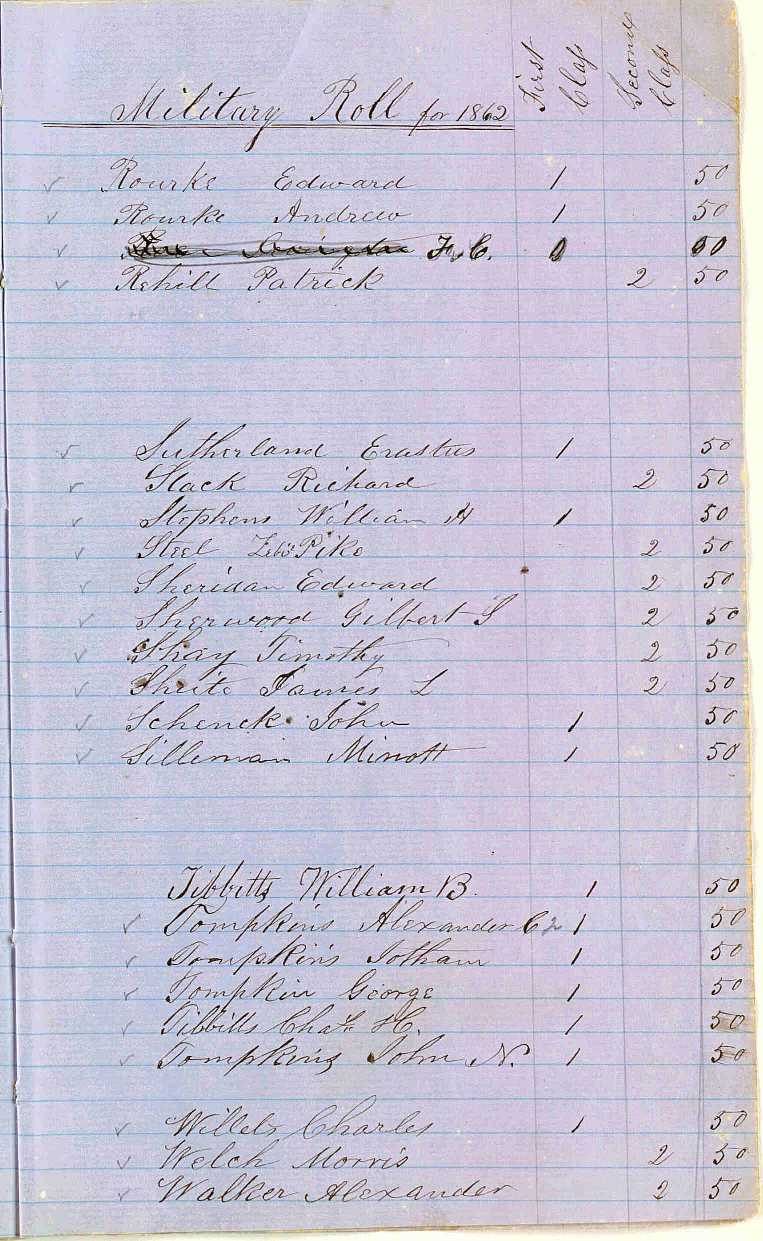 First Class Second Class
Military Roll for 1862
Rourke Edward 1 50
Rourke Andrew 1 50
F. C.
Rehill Patrick 2 50
Sutherland Erastus 1 50
Slack Richard 2 50
Stephens William H 1 50
Steel Pike 2 50
Sheridan Edward 2 50
Sherwood Gilbert S 2 50
Shay Timothy 2 50
Shute James L 2 50
Schenck John 1 50
Silleman Minott 1 50
Tibbitts William B. 1 50
Tompkins Alexander C 2 1 50
Tompkins Jotham 1 50
Tompkin George 1 50
Tibbitts Chas. H. 1 50
Tompkins John N. 1 50
Willets Charles 1 50
Welch Morris 2 50
Walker Alexander 2 50